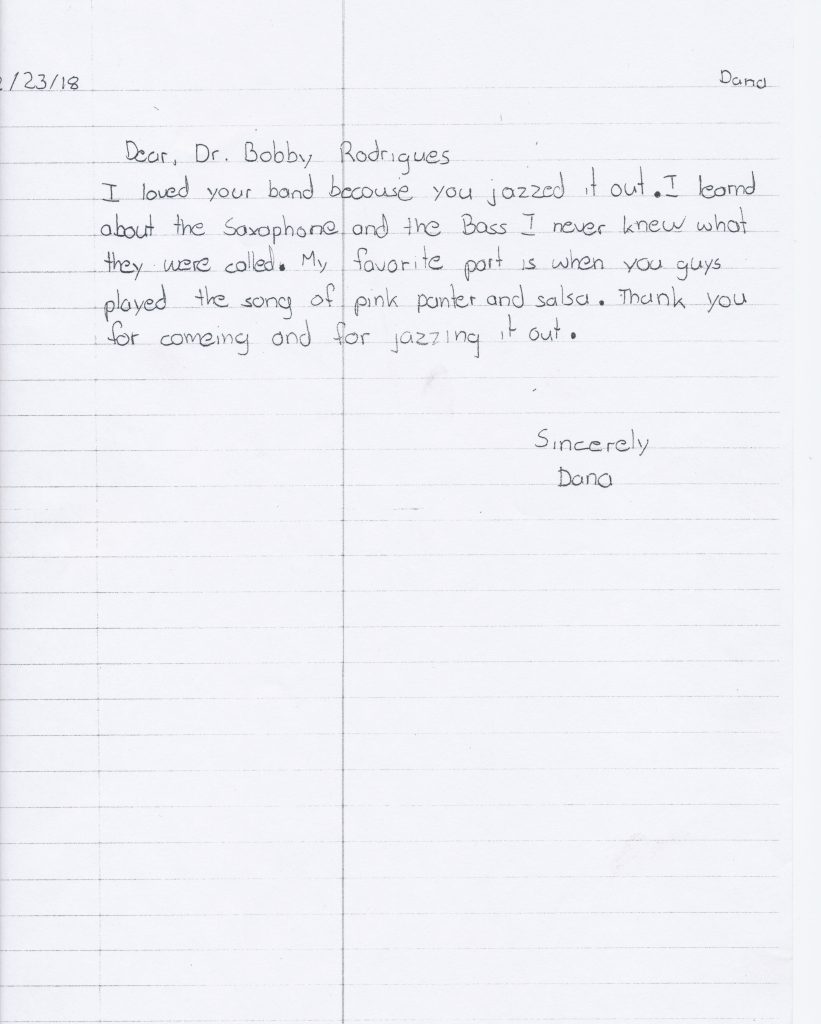 /23/18 Dana
Dear, Dr. Bobby Rodrigues
I loved your band because you jazzed it out. I learnd
about the Saxophone and the Bass I never knew what
they were called. My favorite part is when you guys
played the song of pink panter and salsa. Thank you
for comeing and for jazzing it out.
Sincerely
Dana